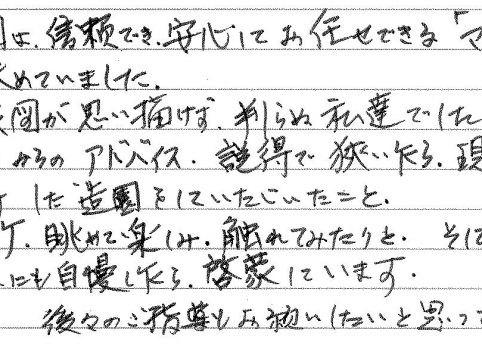 は、信頼でき、安心してお任せできる「マ
めていました。
図が思い描けず、判らぬ私達でした
からのアドバイス、説得で狭いながら、現
した造園をしていただいたこと。
眺めて楽しみ、触れてみたりと、そして
にも自慢しながら、啓蒙しています。
後々のご指導もお願いしたいと思って